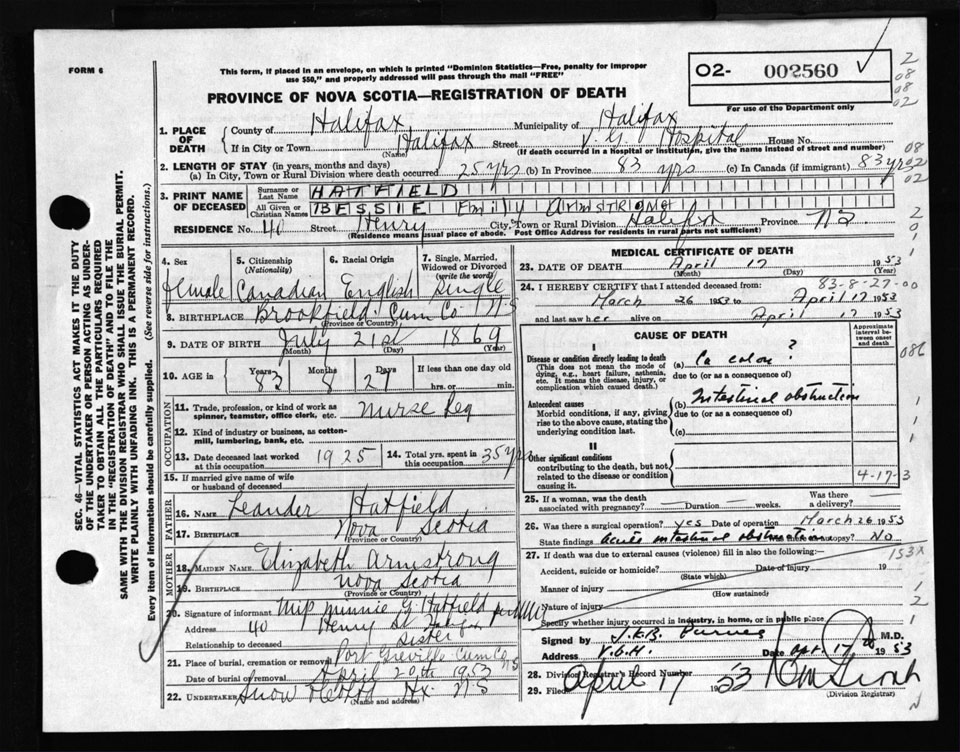 FORM 6
This form, if placed in an envelope, on which is printed "Dominion Statistics—Free, penalty for improper
use $50," and properly addressed will pass through the mail "FREE"
02- 002560
For use of the Department only
PROVINCE OF NOVA SCOTIA—REGISTRATION OF DEATH
SEC. 46—VITAL STATISTICS ACT MAKES IT THE DUTY
OF THE UNDERTAKER OR PERSON ACTING AS UNDER-
TAKER TO OBTAIN ALL THE PARTICULARS REQUIRED
IN THE "REGISTRATION OF DEATH" AND TO FILE THE
SAME WITH THE DIVISION REGISTRAR WHO SHALL ISSUE THE BURIAL PERMIT.
WRITE PLAINLY WITH UNFADING INK. THIS IS A PERMANENT RECORD.
Every item of information should be carefully supplied. (See reverse side for instructions.)
1. PLACE OF DEATH County of Halifax Municipality of Halifax
If in City or Town Halifax (Name) Street V.G. Hospital House No.
(If death occurred in a hospital or institution, give the name instead of street and number)
2. LENGTH OF STAY (in years, months and days)
(a) In City, Town or Rural Division where death occurred 25 yrs (b) In Province 83 yrs (c) In Canada (if immigrant) 83 yrs
3. PRINT NAME OF DECEASED Surname or Last Name HATFIELD
All Given or Christian Names BESSIE Emily ARMSTRONG
RESIDENCE No. 40 Street Henry City, Town or Rural Division Halifax Province N.S.
(Residence means usual place of abode. Post Office Address for residents in rural parts not sufficient)
4. Sex female
5. Citizenship (Nationality) Canadian
6. Racial Origin English
7. Single, Married, Widowed or Divorced (write the word) Single
8. BIRTHPLACE Brookfield Cum Co N.S
(Province or Country)
9. DATE OF BIRTH July 21st 1869
(Month) (Day) (Year)
10. AGE in Years 83 Months 8 Days 27 If less than one day
hrs. or min.
OCCUPATION
11. Trade, profession, or kind of work as spinner, teamster, office clerk, etc. nurse Reg
12. Kind of industry or business, as cotton-mill, lumbering, bank, etc.
13. Date deceased last worked at this occupation 1925
14. Total yrs. spent in this occupation 35 yrs
15. If married give name of wife or husband of deceased
FATHER
16. Name Leander Hatfield
17. BIRTHPLACE Nova Scotia
(Province or Country)
MOTHER
18. MAIDEN NAME Elizabeth Armstrong
19. BIRTHPLACE Nova Scotia
(Province or Country)
20. Signature of informant Minnie G. Hatfield
Address 40 Henry St Halifax
Relationship to deceased Sister
21. Place of burial, cremation or removal Port Greville Cum Co N S
Date of burial or removal April 20th 1953
22. Undertaker Snow Hx. N.S
(Name and address)
MEDICAL CERTIFICATE OF DEATH
23. DATE OF DEATH April 17 1953
(Month) (Day) (Year)
83-8-27-00
24. I HEREBY CERTIFY that I attended deceased from:
March 26 1953 to April 17 1953
and last saw her alive on April 17 1953
CAUSE OF DEATH
Approximate interval between onset and death
I
Disease or condition directly leading to death
(This does not mean the mode of dying, e.g., heart failure, asthenia, etc. It means the disease, injury, or complication which caused death.)
(a) Ca colon?
due to (or as a consequence of)
Antecedent causes
Morbid conditions, if any, giving rise to the above cause, stating the underlying condition last.
(b) Intestinal obstruction
due to (or as a consequence of)
(c)
II
Other significant conditions
contributing to the death, but not related to the disease or condition causing it.
4-17-3
25. If a woman, was the death associated with pregnancy? Duration weeks. Was there a delivery?
26. Was there a surgical operation? yes Date of operation March 26 1953
State findings Acute intestinal obstruction Was there an autopsy? No
27. If death was due to external causes (violence) fill in also the following:— 153X
Accident, suicide or homicide? Date of injury 19
(State which)
Manner of injury
(How sustained)
Nature of injury
Specify whether injury occurred in industry, in home, or in public place
Signed by M.D.
Address V.G.H. Date Apr. 17 1953
28. Division Registrar's Record Number
29. Filed April 17 1953
(Division Registrar)